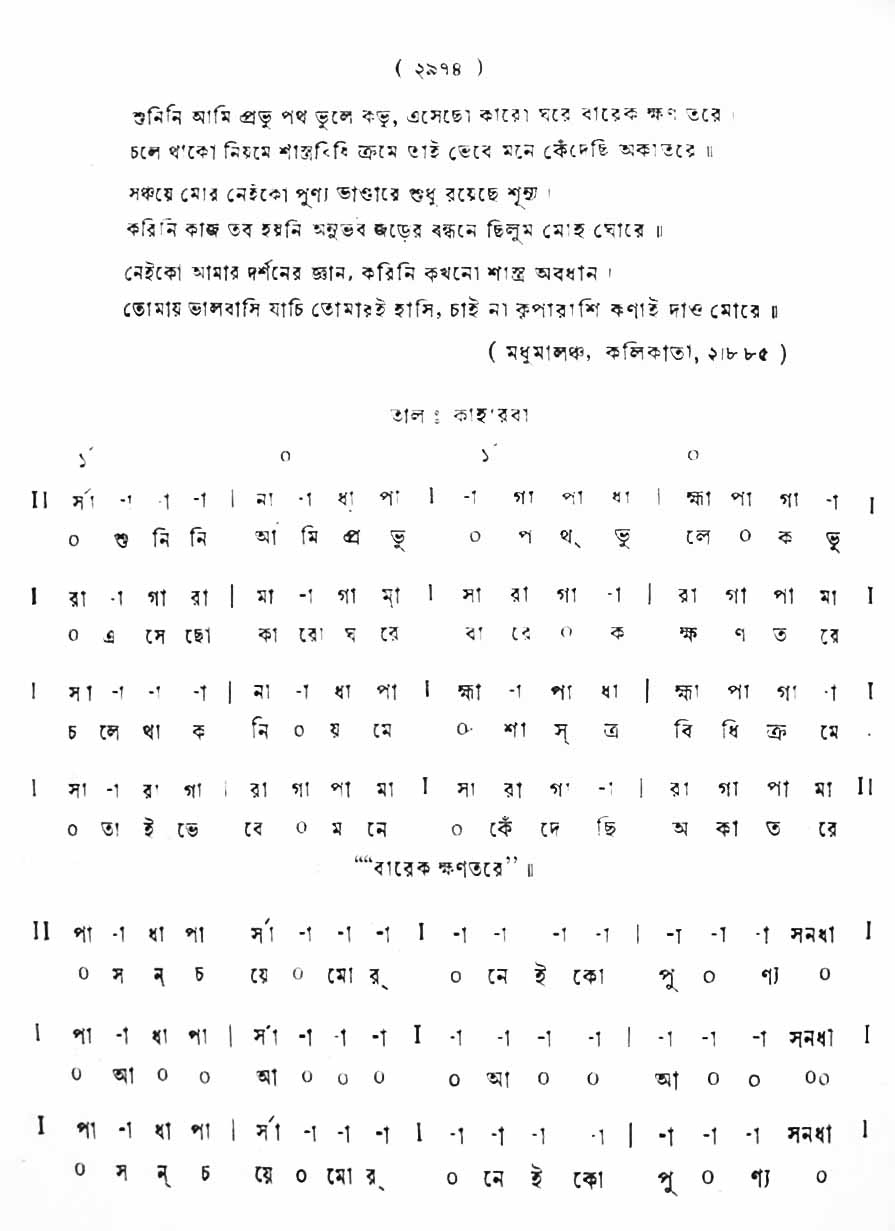 ( ২৯৭৪ )
শুনিনি আমি প্রভু পথ ভুলে কভু, এসেছো কারো ঘরে বারেক ক্ষণ তরে ।
চলে থ'কো নিয়মে শাস্ত্রবিধি ক্রমে তাই ভেবে মনে কেঁদেছি অকাতরে ॥
সঞ্চয়ে মোর নেইকো পুণ্য ভাণ্ডারে শুধু রয়েছে শূন্য ।
করিনি কাজ তব হয়নি অনুভব জড়ের বন্ধনে ছিলুম মোহ ঘোরে ॥
নেইকো আমার দর্শনের জ্ঞান, করিনি কখনো শাস্ত্র অবধান ।
তোমায় ভালবাসি যাচি তোমারই হাসি, চাই না কৃপারাশি কণাই দাও মোরে ॥
( মধুমালঞ্চ, কলিকাতা, ২।৮৮৫ )
তাল ঃ কাহ'রবা
১´ ০ ১´ ০
II র্সা -া -া -া | না -া ধা পা I -া গা পা ধা | হ্মা পা গা -া I
০ শু নি নি আ মি প্র ভু ০ প থ্ ভু লে ০ ক ভু
I রা -া গা রা | মা -া গা মা I সা রা গা -া | রা গা পা মা I
০ এ সে ছো কা রো ঘ রে বা রে ০ ক ক্ষ ণ ত রে
I সা -া -া -া | না -া ধা পা I হ্মা -া পা ধা | হ্মা পা গা -া I
চ লে থা ক নি ০ য় মে ০ শা স্ ত্র বি ধি ক্র মে
I সা -া রা গা | রা গা পা মা I সা রা গা -া | রা গা পা মা II
০ তা ই ভে বে ০ ম নে ০ কেঁ দে ছি অ কা ত রে
““বারেক ক্ষণতরে” ॥
II পা -া ধা পা র্সা -া -া -া I -া -া -া -া | -া -া -া সনধা I
০ স ন্ চ য়ে ০ মো র্ ০ নে ই কো পু ০ ণ্য ০
I পা -া ধা পা | র্সা -া -া -া I -া -া -া -া | -া -া -া সনধা I
০ আ ০ ০ আ ০ ০ ০ ০ আ ০ ০ আ ০ ০ ০০
I পা -া ধা পা | র্সা -া -া -া I -া -া -া -া | -া -া -া সনধা I
০ স ন্ চ য়ে ০ মো র্ ০ নে ই কো পু ০ ণ্য ০